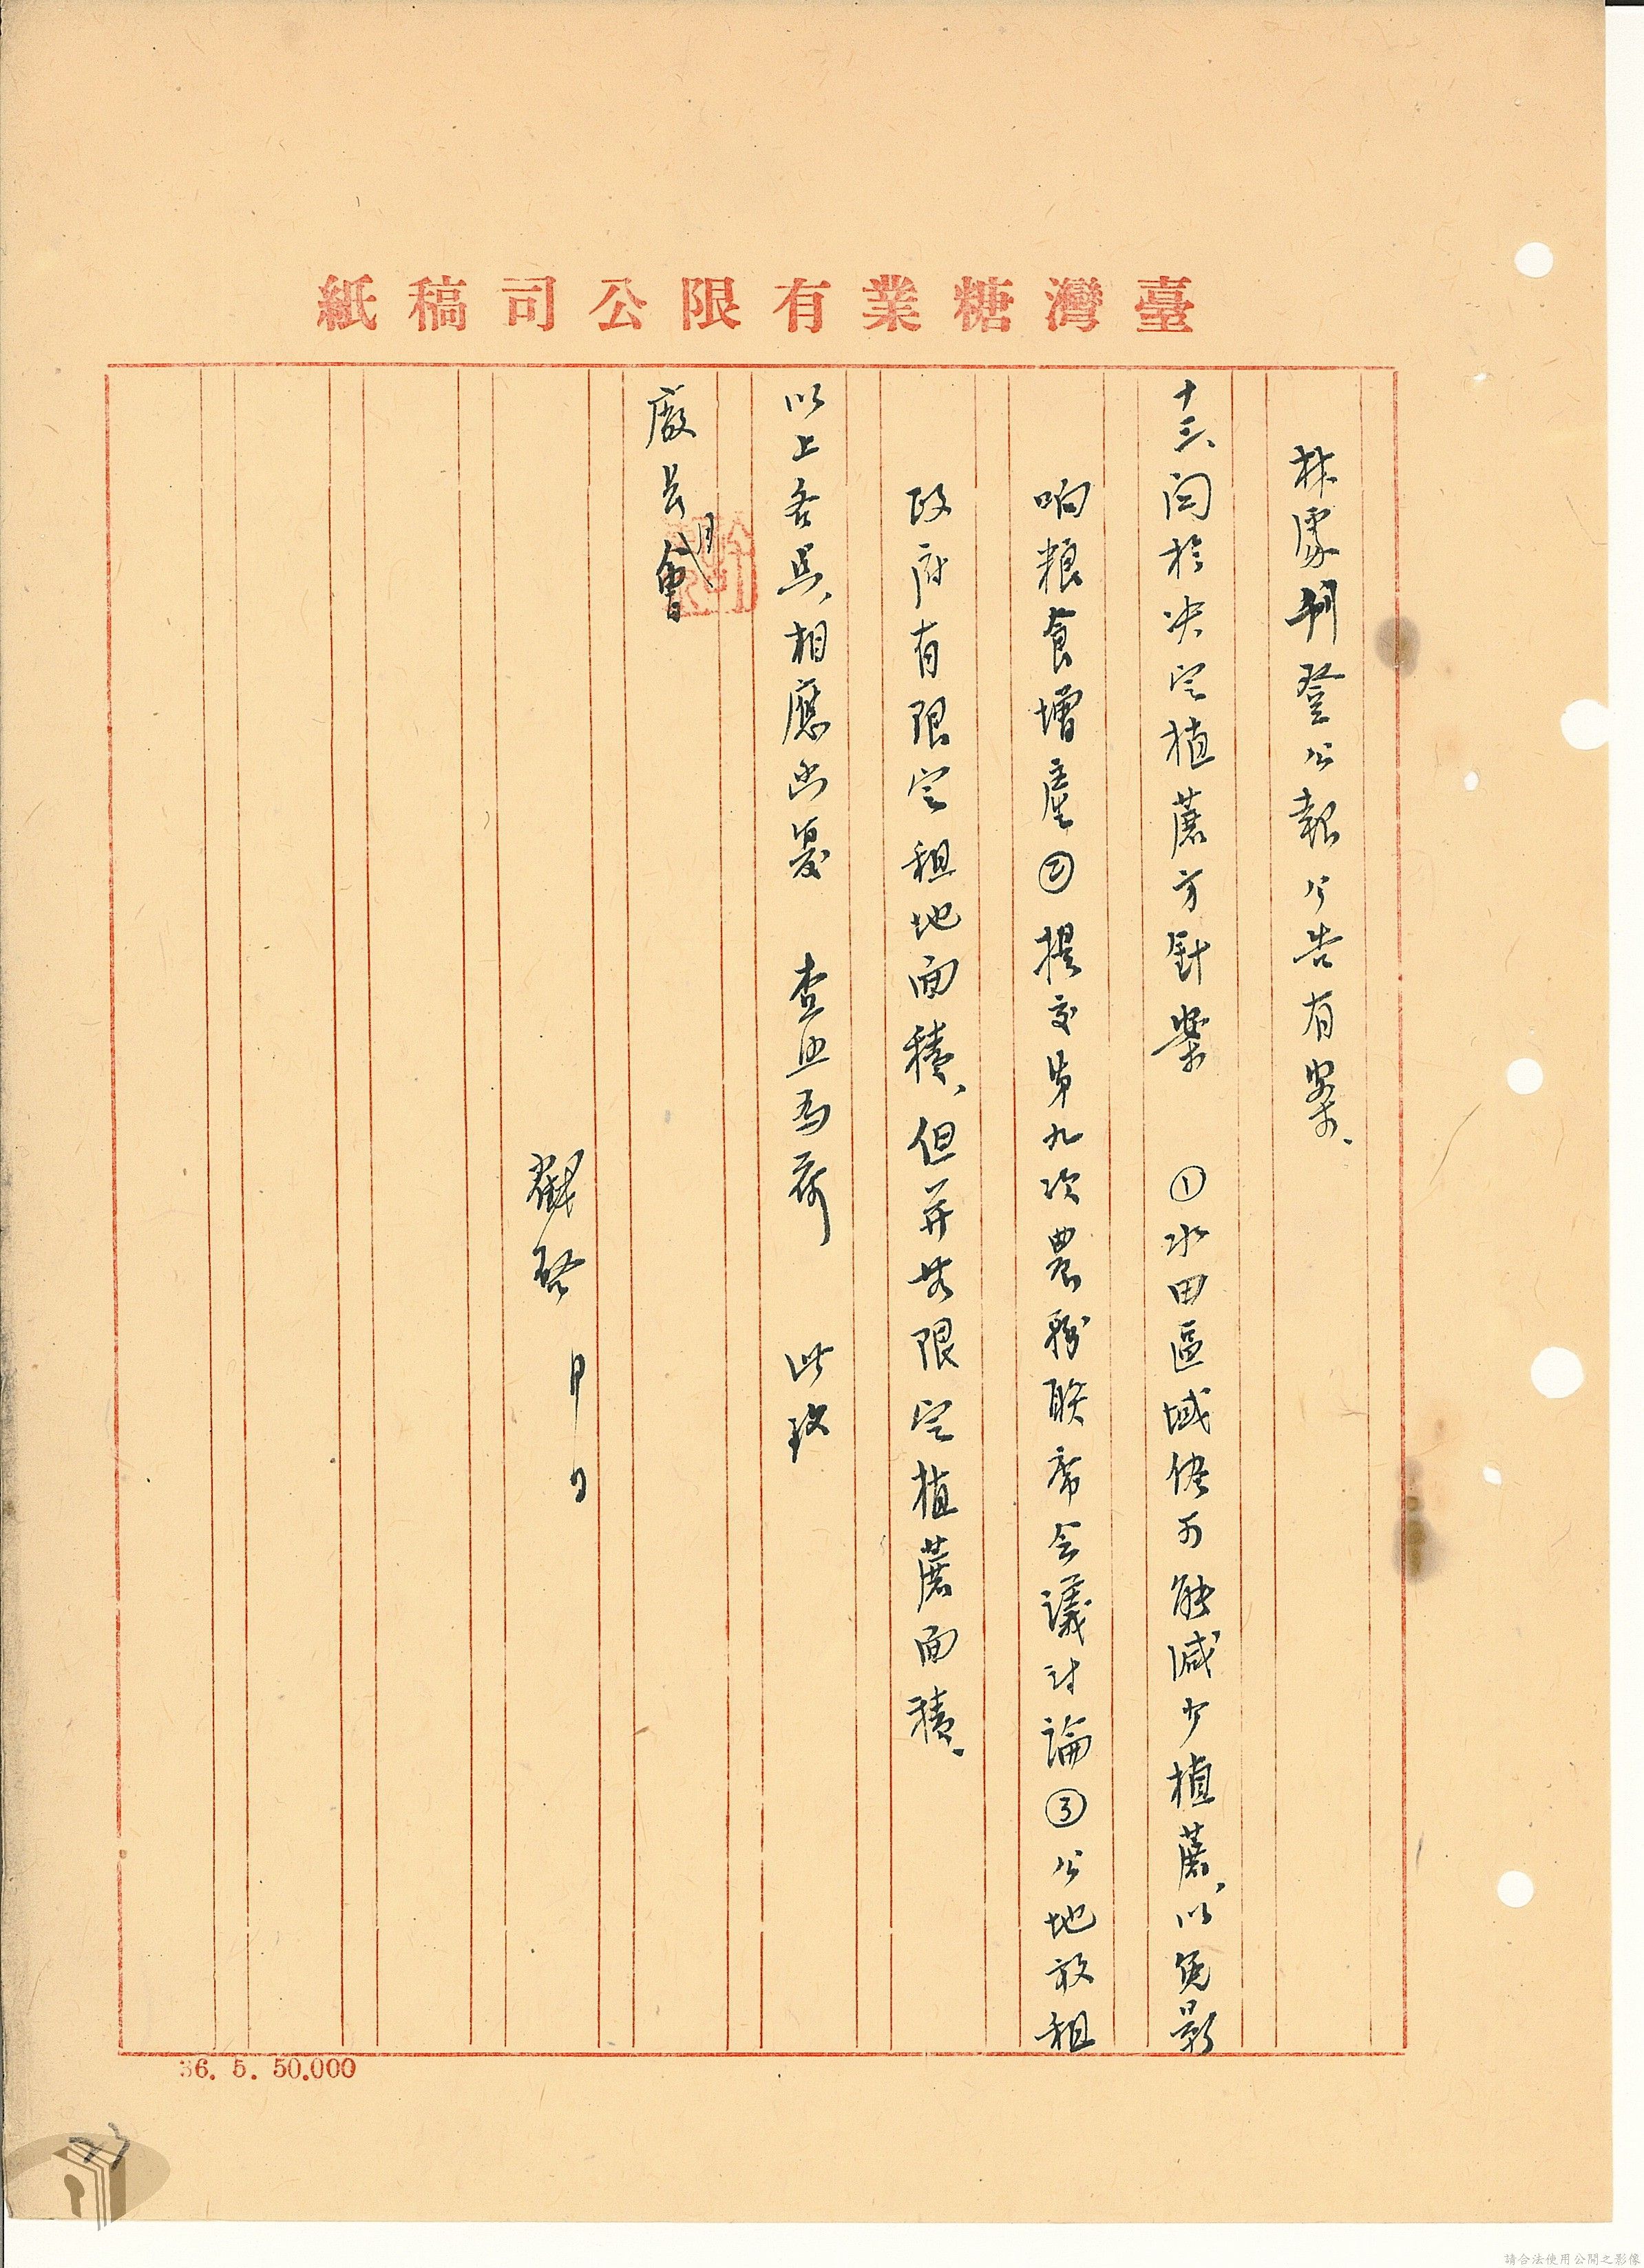 臺灣糖業有限公司稿紙
林處刊登公報公告有案、
十三、関於决定植蔗方針案 ①水田區域儘可能減少植蔗、以免影
响粮食增產②提交第九次農務联席会議討論③公地放租
政府有限定租地面積、但并無限定植蔗面積、
以上各点、相應函复 查照為荷 此致
廠長
啓 月 日
36. 5. 50.000
23
請合法使用公開之影像